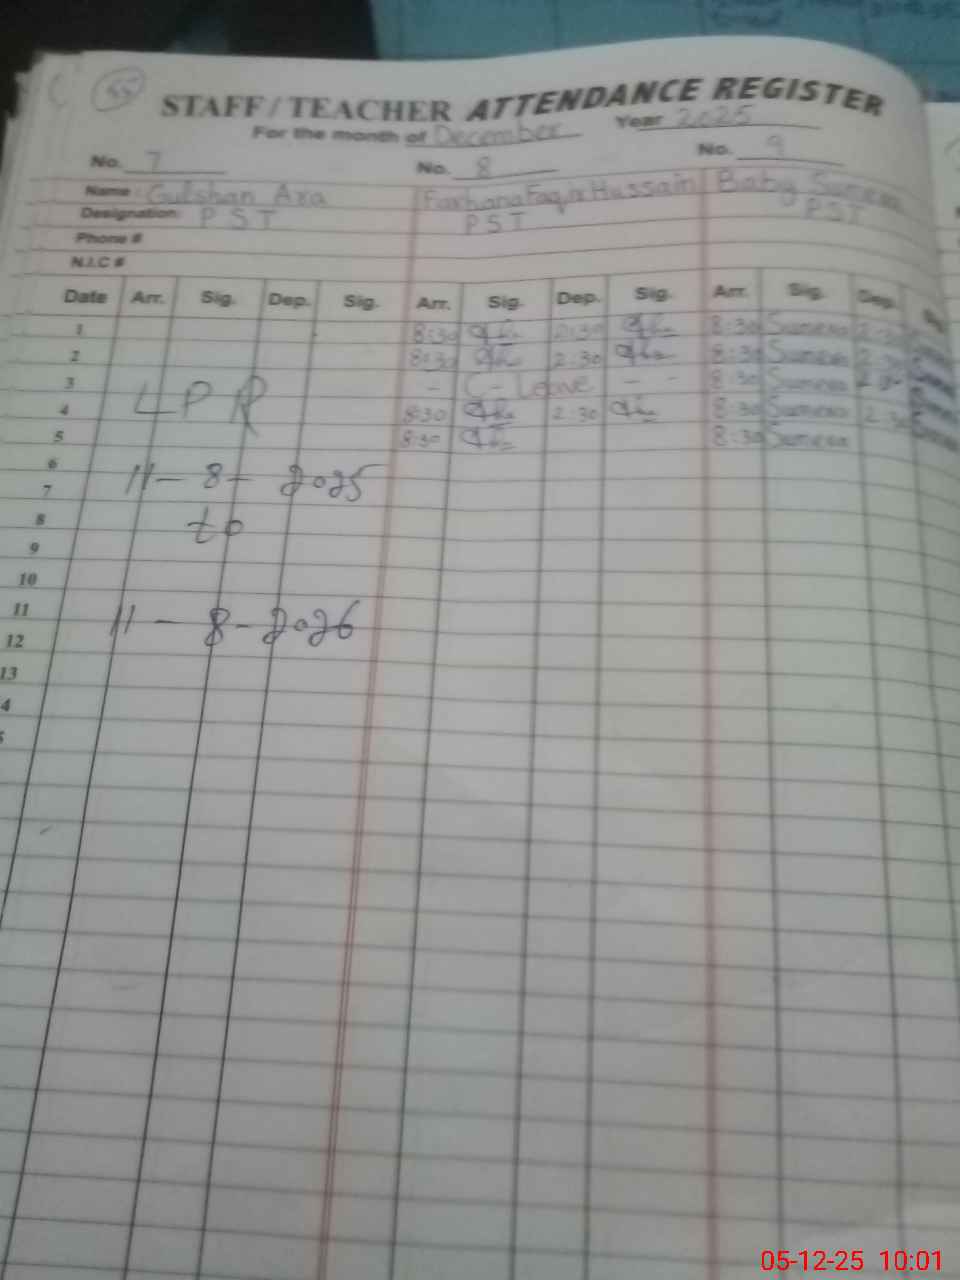 55
STAFF / TEACHER ATTENDANCE REGISTER
For the month of December Year 2025
No. 7 No. 8 No. 9
Name : Gulshan Ara Farhana Faqir Hussain Baby Sumera
Designation: PST PST PST
Phone #
N.I.C #
Date Arr. Sig. Dep. Sig. Arr. Sig. Dep. Sig. Arr. Sig. Dep.
1 8:30 2:30 8:30 Sumera 2:30
2 8:30 2:30 8:30 Sumera 2:30
3 - C- Leave - - 8:30 Sumera
LPR
4 8:30 2:30 8:30 Sumera 2:30
5 8:30 8:30 Sumera
6
11 - 8 - 2025
7
8
to
9
10
11
11 - 8 - 2026
12
13
4
5
05-12-25 10:01